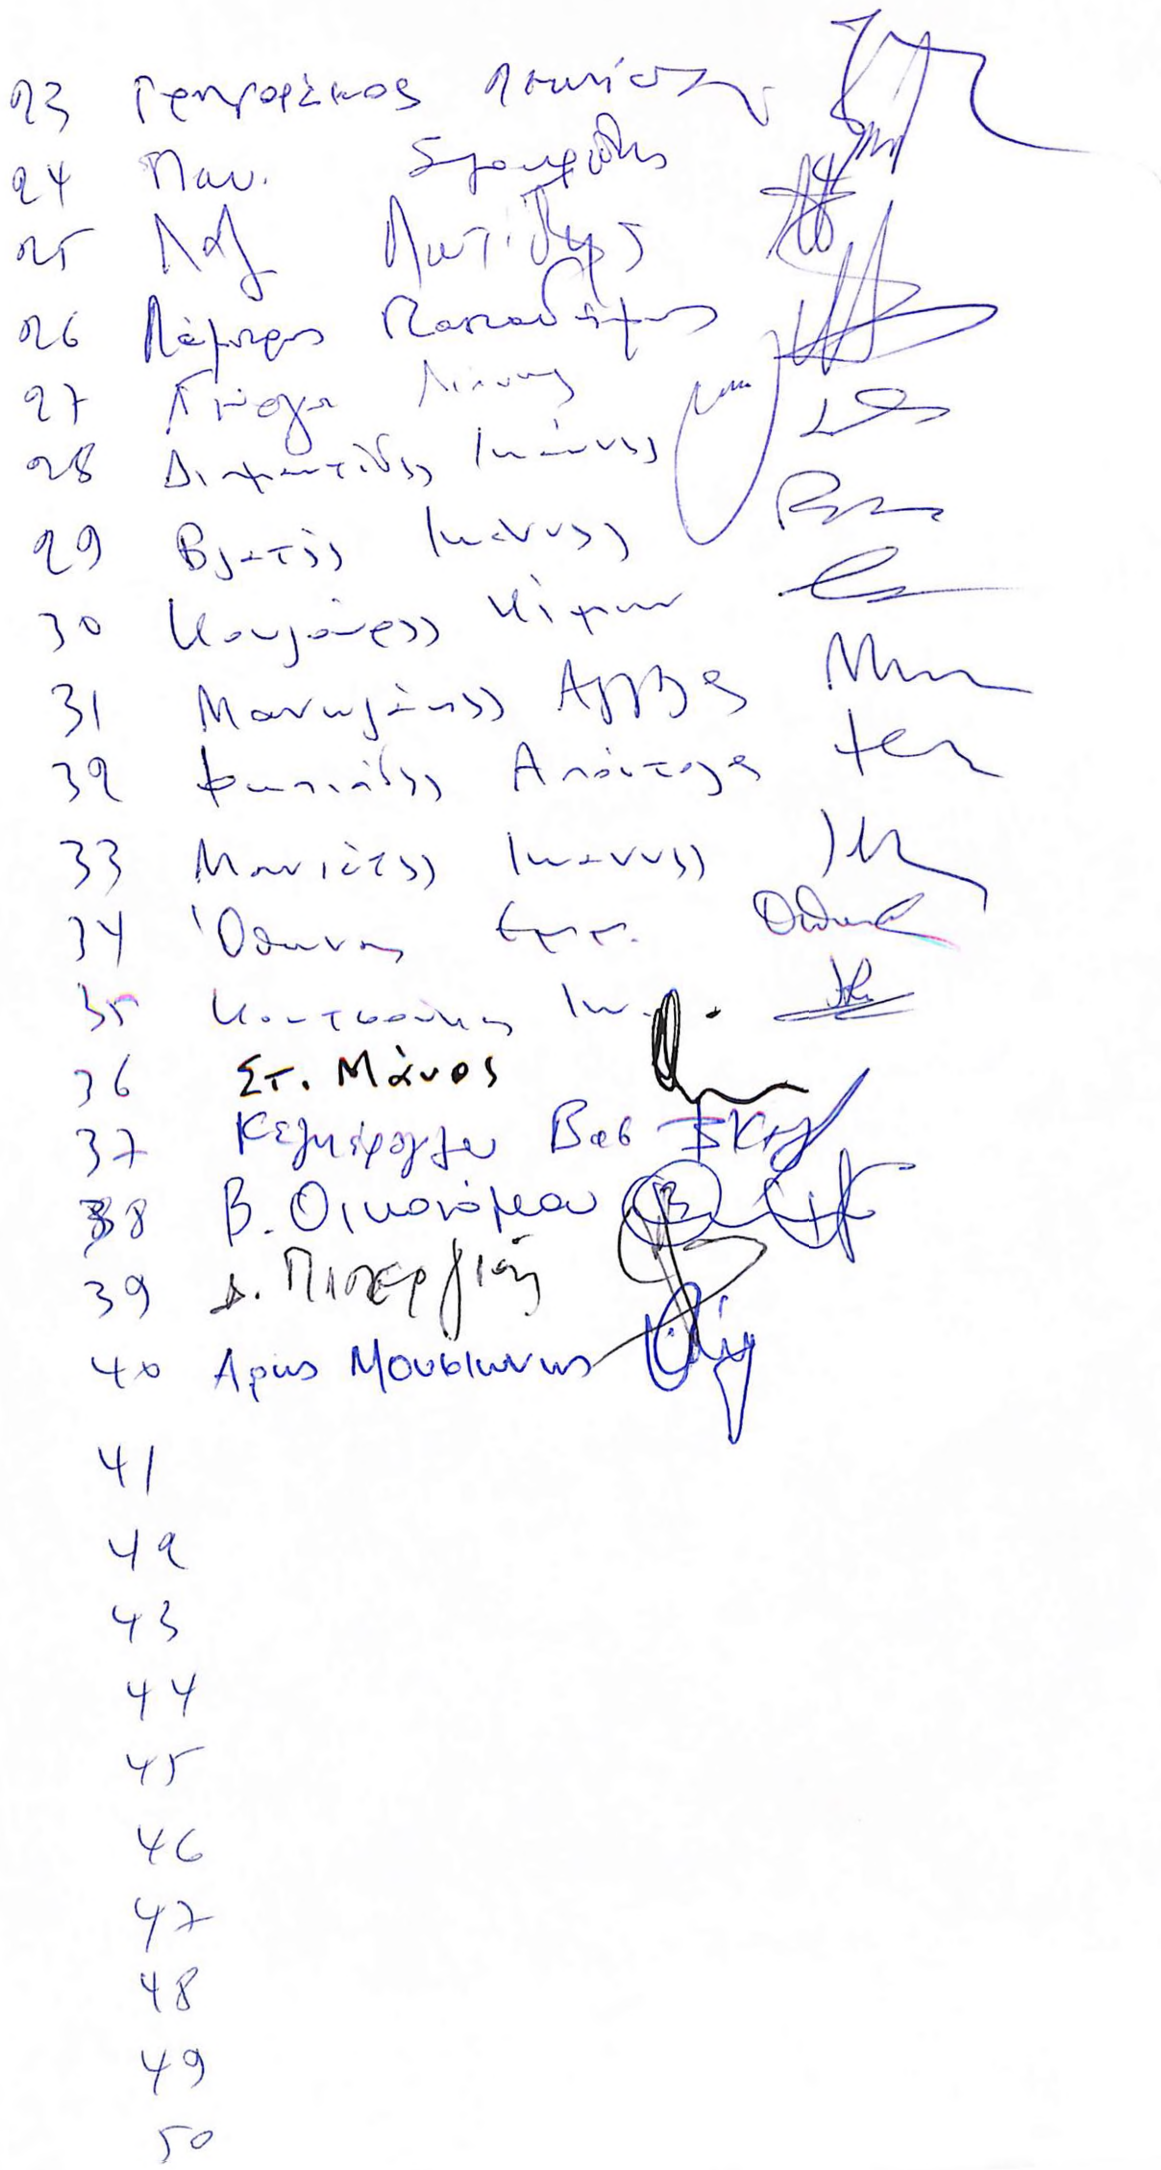 23 Γρηγοράκος Λεωνίδας
24 Παν. Σγουρίδης
25 Λαζ Λωτίδης
26 Λάμπρος Παπαδήμας
27 Γκιόγκα
28 Διαμαντίδης Ιωάννης
29 Βλατής Ιωάννης
30 Κουλούρης Κίμων
31 Μανωλάκης Άγγελος
32 Φωτιάδης Απόστολος
33 Μανιάτης Ιωάννης
34 Όθωνας Εμμ.
35 Κουτσούκος Ιω.
36 Στ. Μάνος
37 Κεγκέρογλου Βασ
38 Β. Οικονόμου
39 Δ. Πιπεργιάς
40 Αρης Μουσιωνης
41
42
43
44
45
46
47
48
49
50